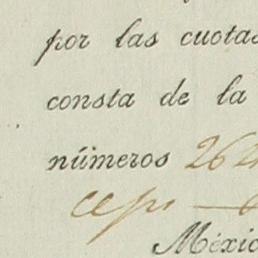 por las cuotas
consta de la
números 26
México